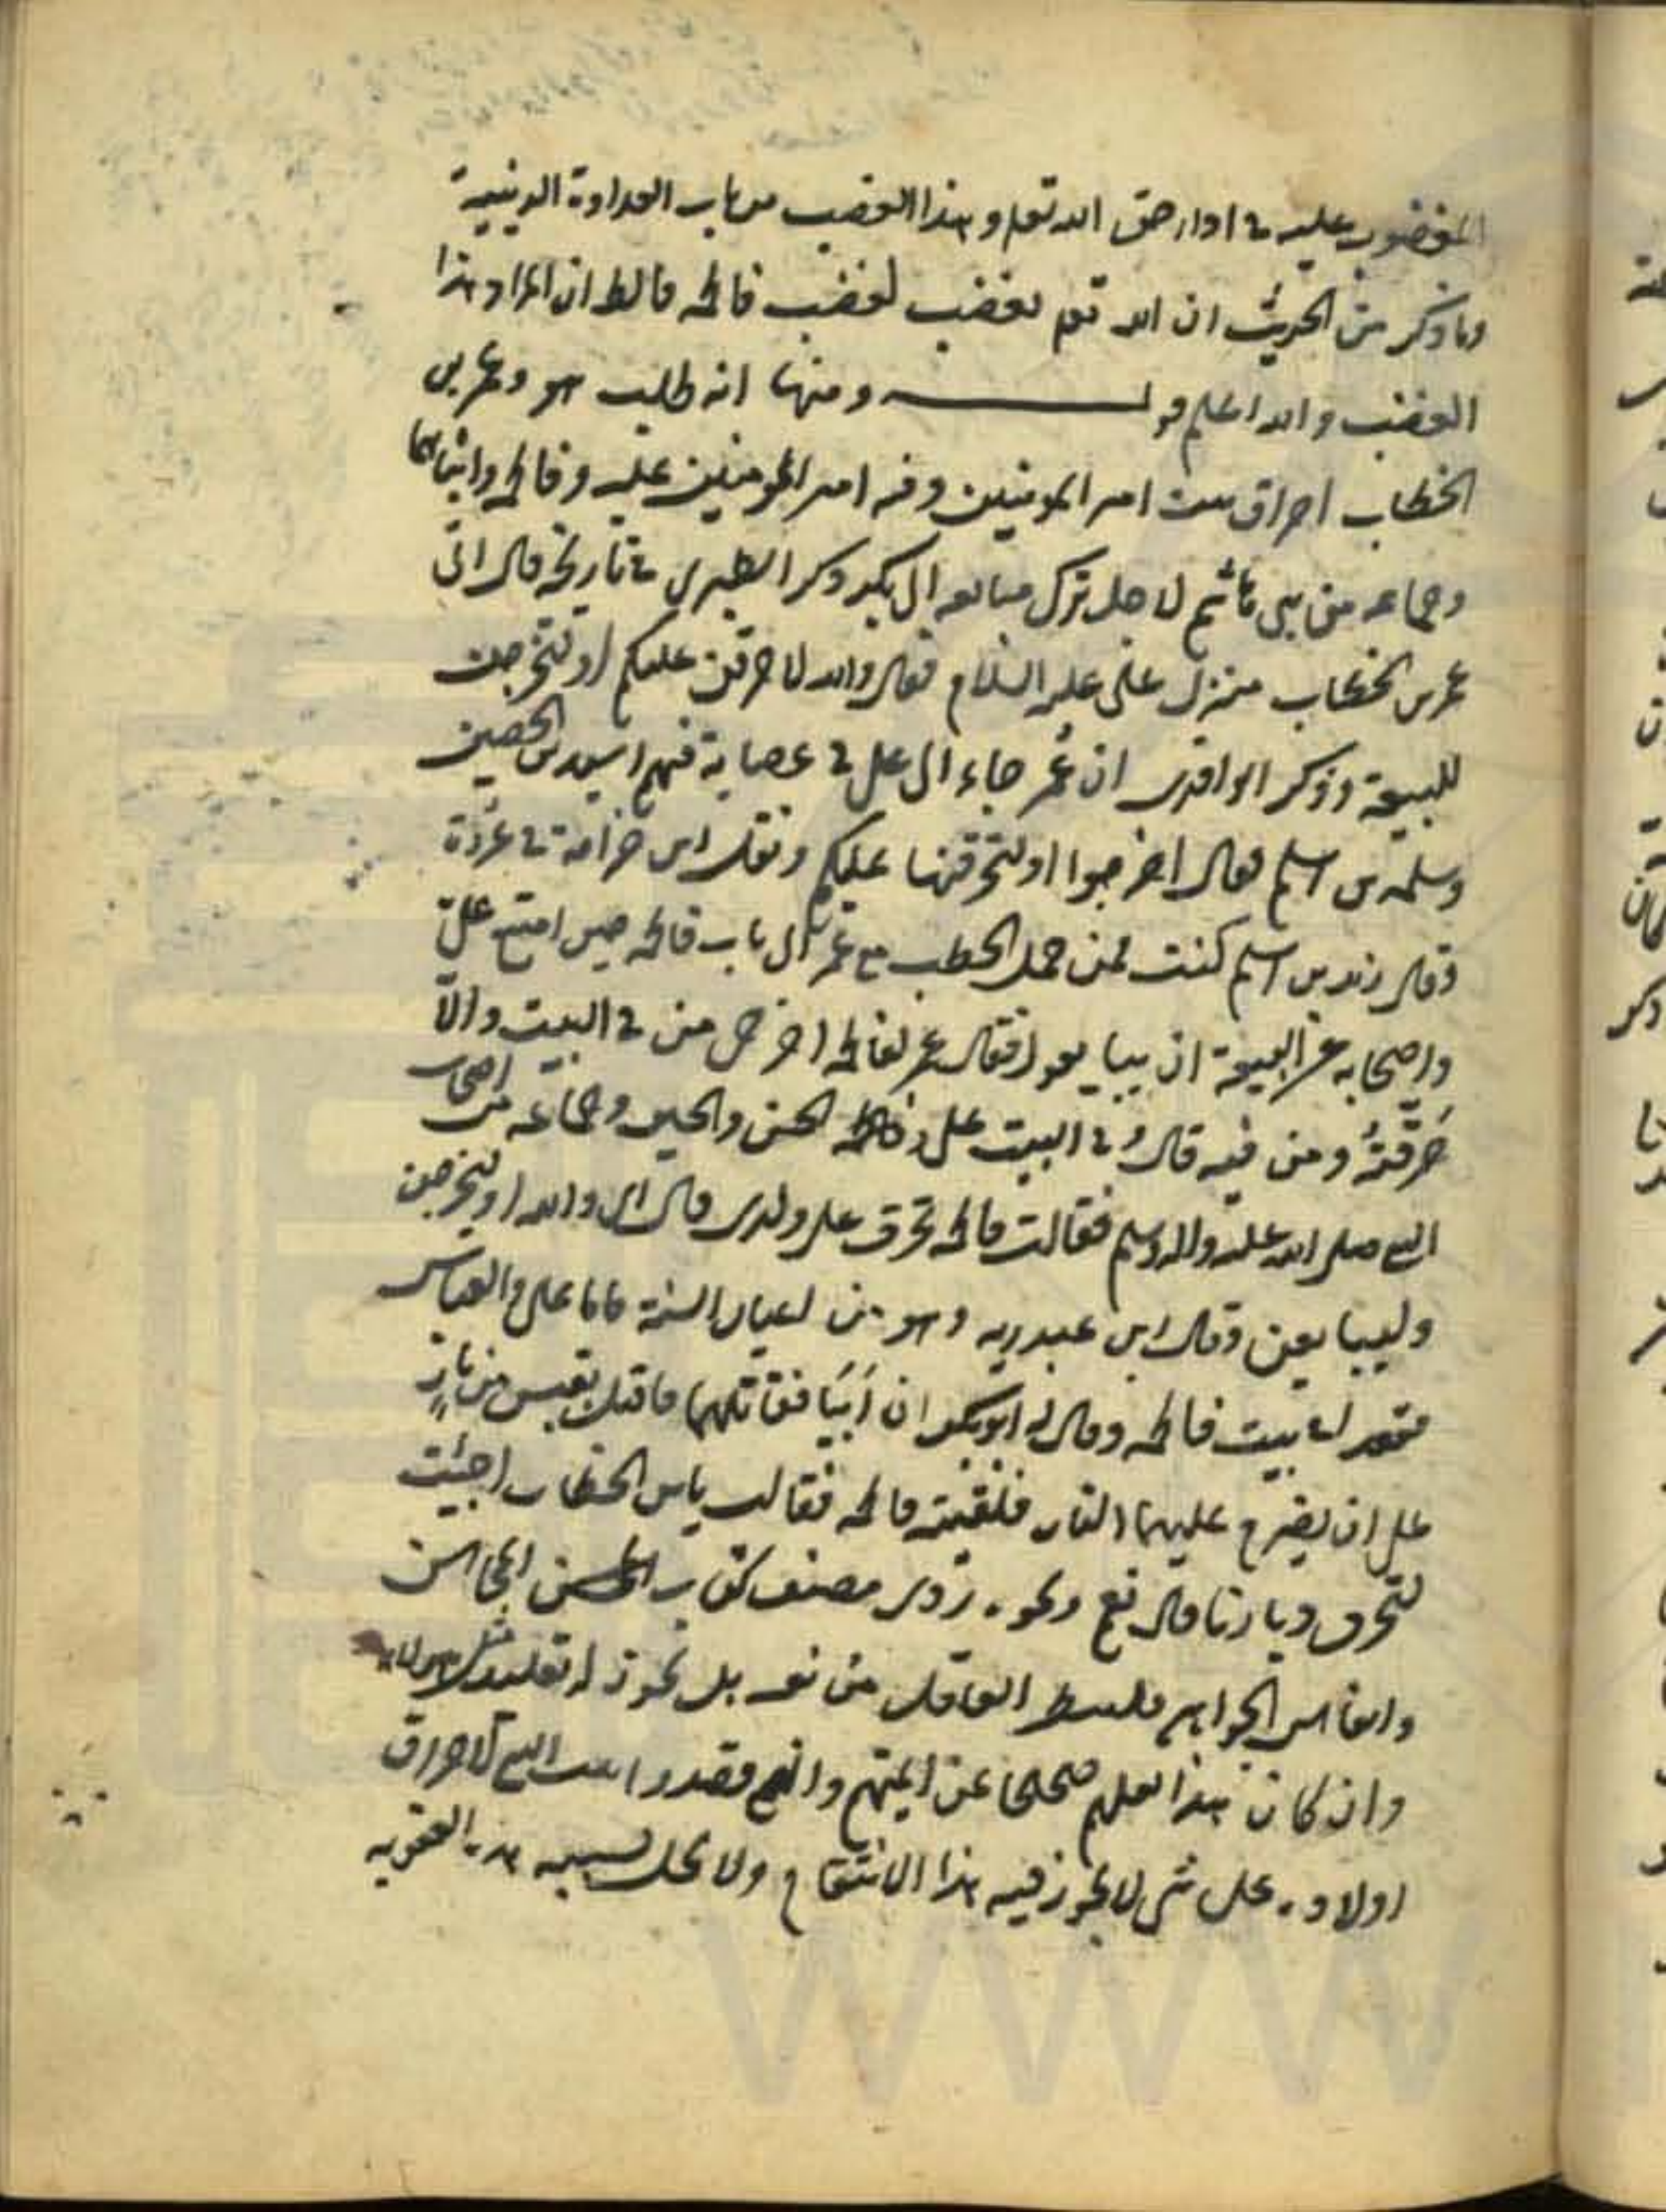 المغضوب عليه في اداء حق الله تعم وهذا الغضب من باب العداوة الدينية
وما ذكر من الحديث ان الله تعم يغضب لغضب فاطمه فالظ ان المراد هذا
الغضب والله اعلم قوله ومنها انه طلب هو وعمر بن
الخطاب احراق بيت امير المومنين وفيه امير المومنين عليه وفاطمه وابناهما
وجماعه من بني هاشم لاجل ترك مبايعه ابي بكر ذكر الطبري في تاريخه قال اتى
عمر بن الخطاب منزل علي عليه السلام فقال والله لاحرقن عليكم او لتخرجن
للبيعة وذكر الواقدى ان عمر جاء الى علي في عصابة فيهم اسيد بن الحصين
وسلمه بن اسلم فقال اخرجوا او لنحرقنها عليكم ونقل ابن خزانة في غرره
وقال زيد بن اسلم كنت ممن حمل الحطب مع عمر الى باب فاطمه حين امتنع علي
واصحابه عن البيعة ان يبايعوا فقال عمر لفاطمه اخرجي من في البيت والا
حرقته ومن فيه قال وفي البيت علي وفاطمه والحسن والحسين وجماعه من اصحاب
النبي صلى الله عليه واله وسلم فقالت فاطمه تحرق على ولدى قال اى والله او ليخرجن
وليبايعن وقال ابن عبد ربه وهو من اعيان السنة فاما علي والعباس
فقعدا في بيت فاطمه وقال له ابو بكر ان ابيا فقاتلهما فاقبل بقبس من نار
على ان يضرم عليهما النار فلقيته فاطمه فقالت يا بن الخطاب اجئت
لتحرق ديارنا قال نعم ونحوه روى مصنف كتاب المحاسن
وانفاس الجواهر فلينظر العاقل من نفسه هل يجوز له تقليد مثل هولاء
وان كان هذا نقلهم صحيحا عن ائمتهم وانهم قصدوا بيت النبي لاحراق
اولاده على شى لا يجوز فيه هذا الانتقام ولا يحل بسببه هذه العقوبه